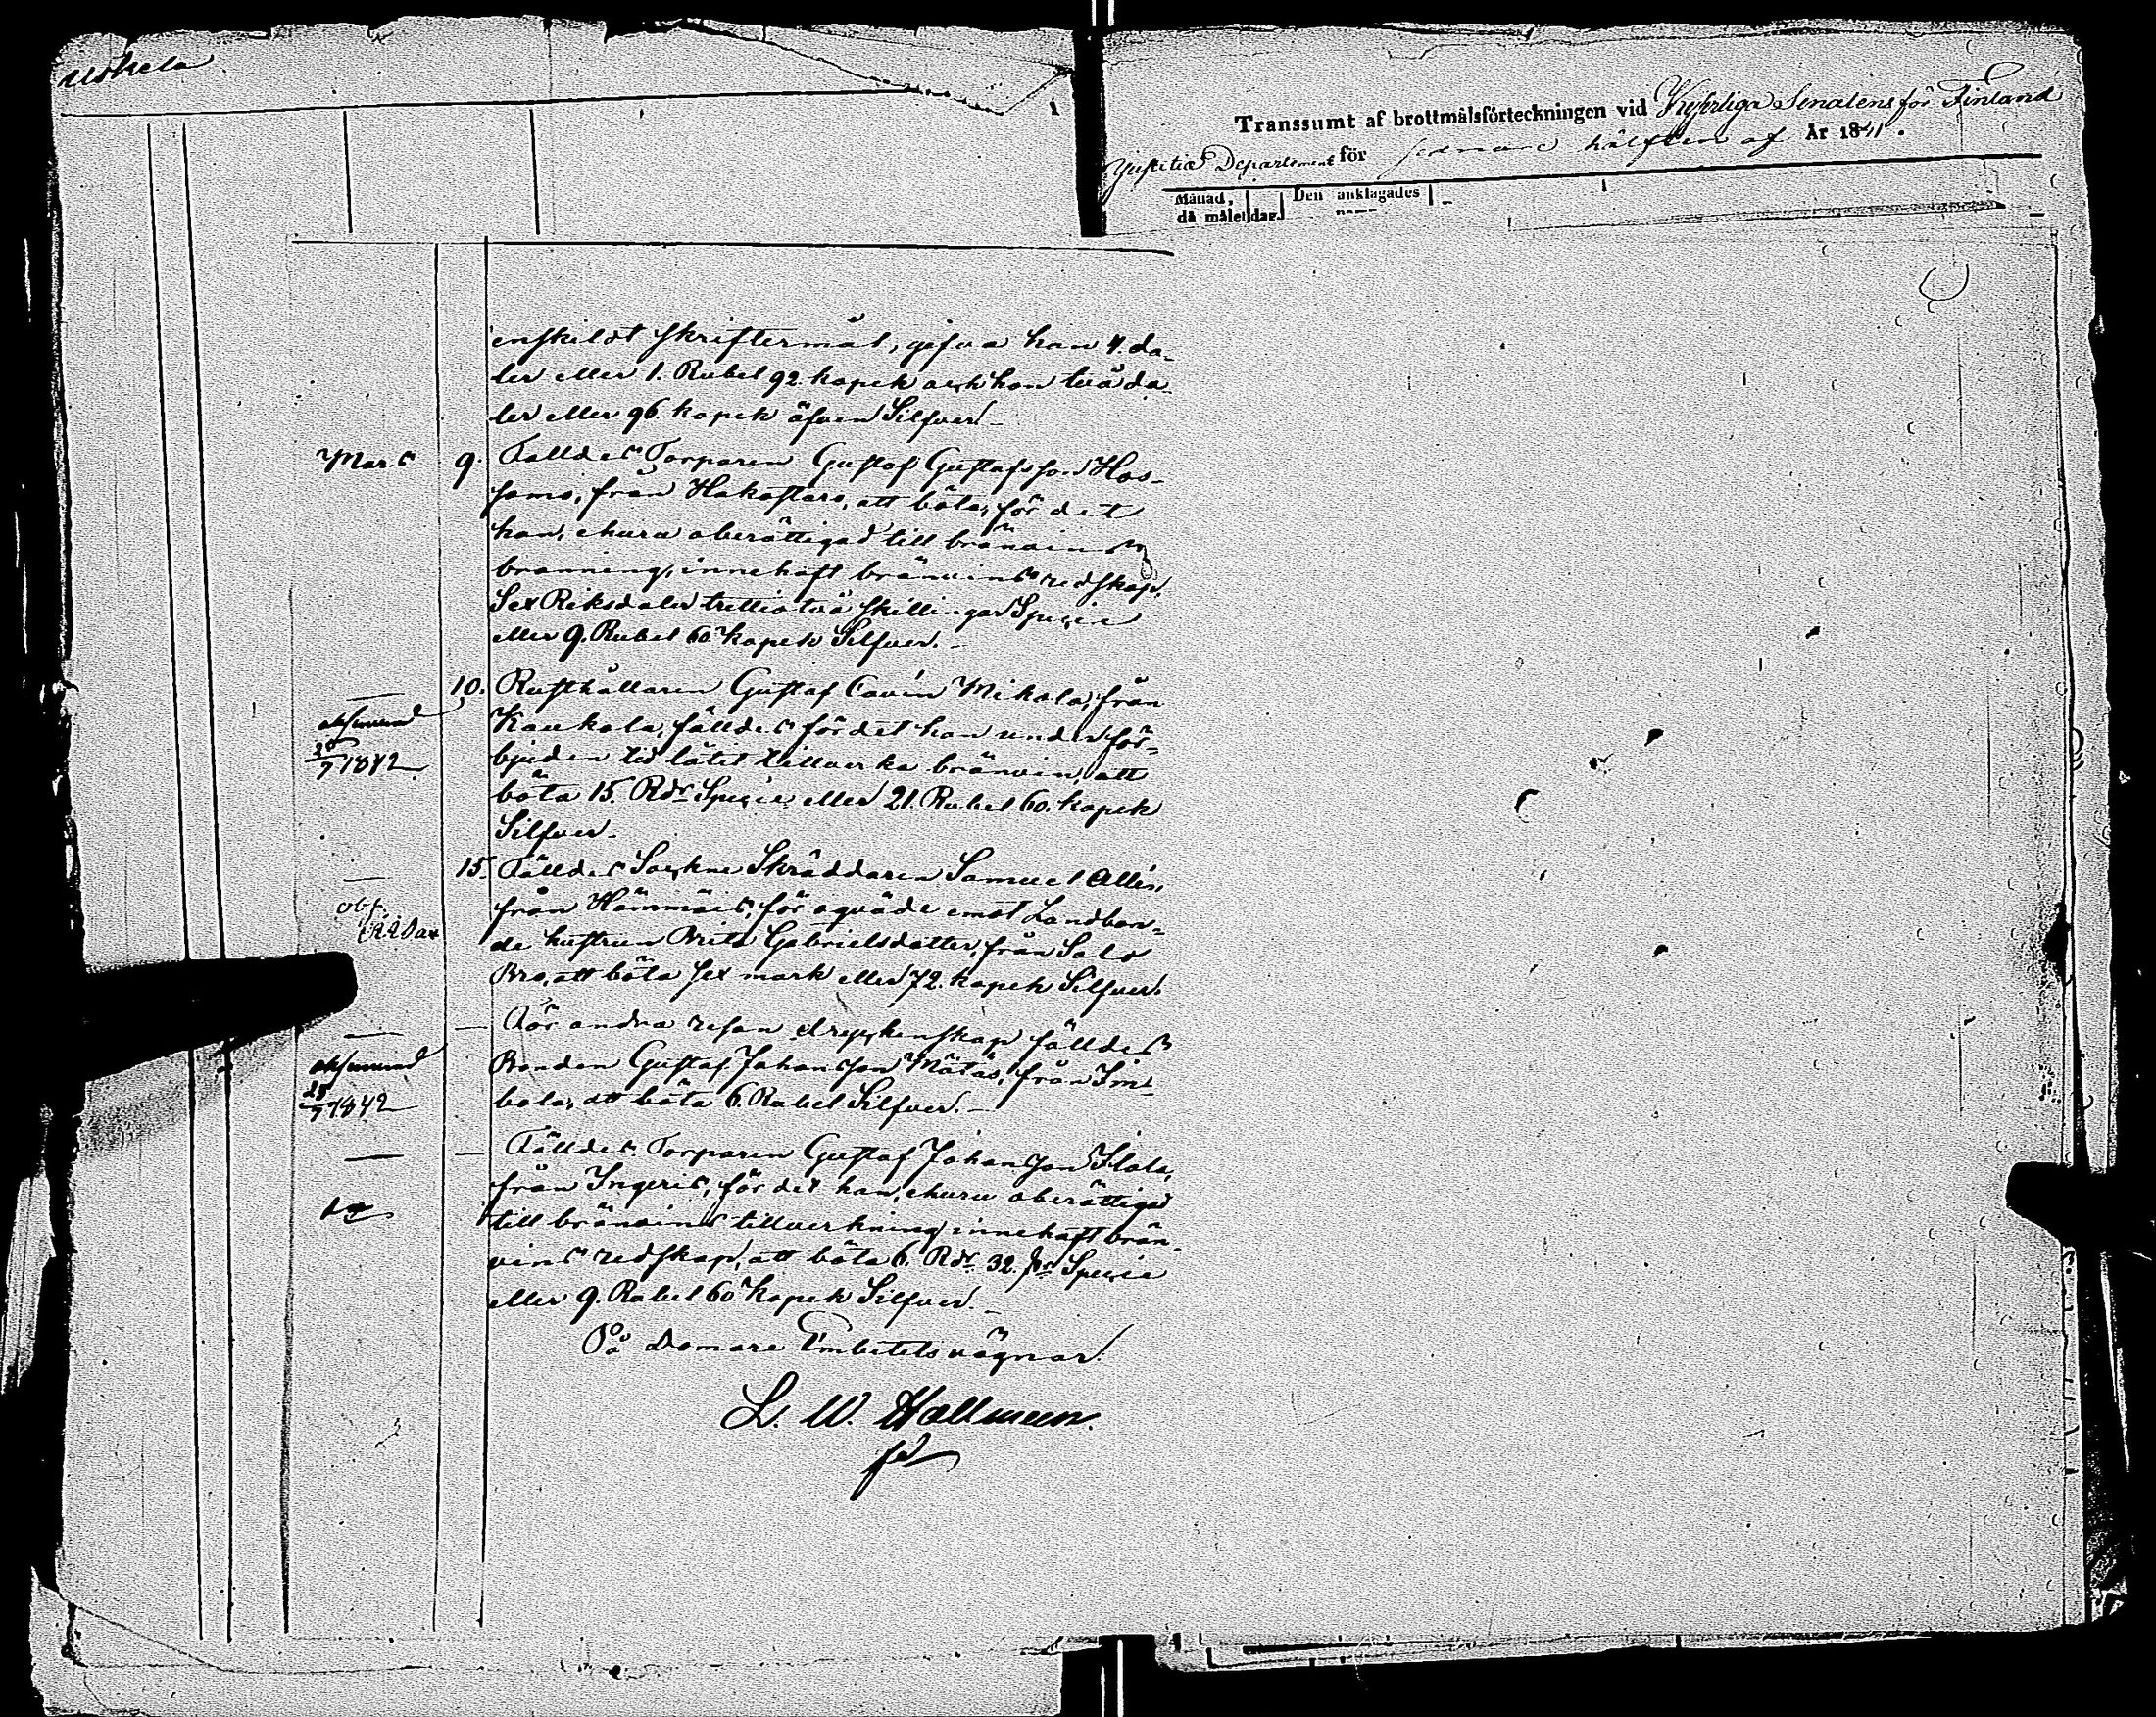 Uskela
Transsumt af brottmålsförteckningen vid Kejserliga Senatens för Finland
Justitiæ Departement för sednare hälften af År 1841.
Månad, då målet
dar.
Den anklagades
enskildt skriftermål, gifva han 4. da-
ler eller 1. Rubel 92. kopek och hon två da
ler eller 96. kopek äfven Silfver.
Mars 9. Fälldes Torparen Gustaf Gustafsson Hos-
samo, från Hakostaro, att böta, för det
han, ehuru oberättigad till bränvins
bränning, innehaft bränvins redskap,
Sex Riksdaler trettio två skillingar Specie
eller 9. Rubel 60 kopek Silfver.
— 10. Rusthållaren Gustaf Cavén Mikola, från
Kaukola, fälldes för det han under för-
bjuden tid låtit tillverka bränvin, att
böta 15. Rdr Specie, eller 21. Rubel 60. kopek
Silfver.
28/7 1842
— 15. Fälldes Sockne Skräddaren Samuel Allén,
från Hämmäis, för oqväde emot Landbon-
de hustrun Brita Gabrielsdotter, från Salo
Bro, att böta sex mark eller 72. kopek Silfver.
obs.
— — För andra resan dryckenskap fälldes
Bonden Gustaf Johansson Mätäs, från Im-
bola, att böta 6. Rubel Silfver.
28/7 1842
— — Fälldes Torparen Gustaf Johansson Ilola,
från Ingeris, för det han, ehuru oberättigad
till bränvins tillverkning innehaft brän-
vins redskap, att böta 6. Rdr 32. sk Specie
eller 9. Rubel 60 kopek Silfver.
På Domare Embetets vägnar.
L. W. Hallmeen.